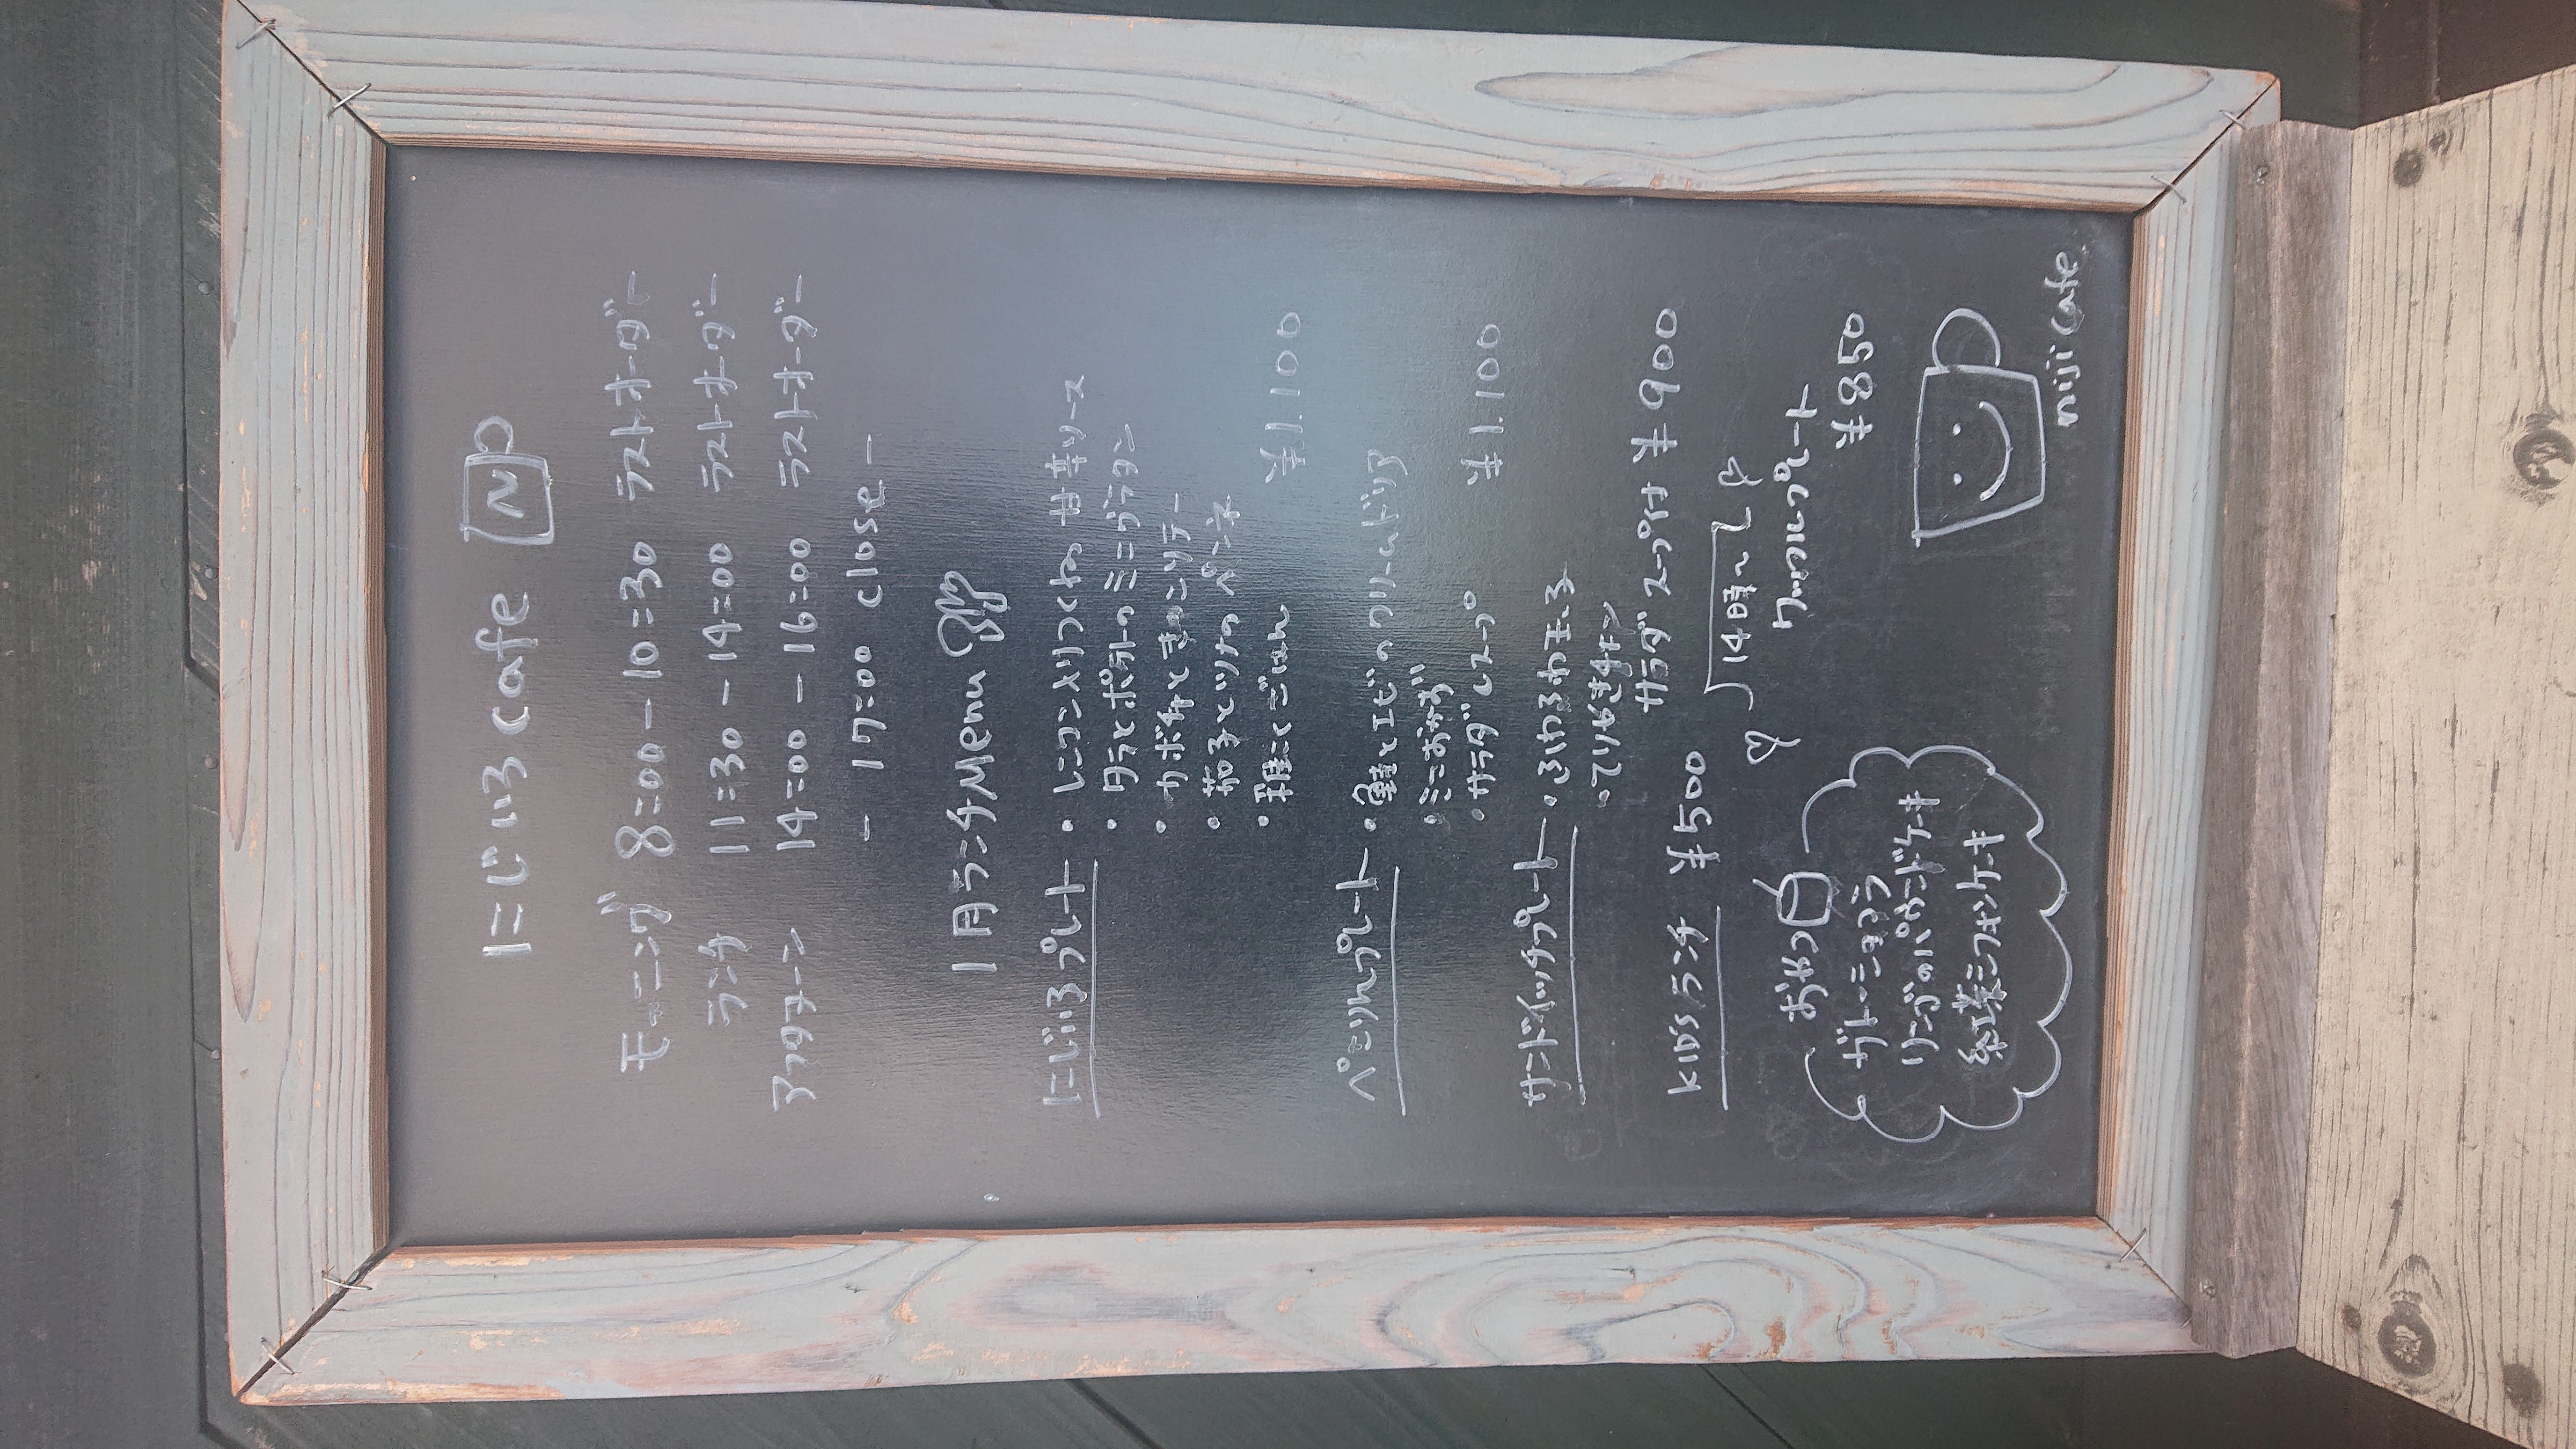 にじいろcafe N
モーニング 8:00-10:30 ラストオーダー
ランチ 11:30-14:00 ラストオーダー
アフタヌーン 14:00-16:00 ラストオーダー
- 17:00 close -
1月ランチMenu
にじいろプレート ・レンコン入りつくね 甘辛ソース
・タラとポテトのミニグラタン
・カボチャときのこソテー
・茹子とツナのペンネ
・雑こくごはん
¥1.100
ペこりんプレート ・鮭とエビのクリームドリア
・ミニおかず
・サラダ ・スープ
¥1.100
サンドイッチプレート ・ふわふわ玉子
・てりやきチキン
サラダ スープ付 ¥900
KID'Sランチ ¥500
14時〜
ワッフルプレート
¥850
おやつ
ガトーショコラ
リンゴのパウンドケーキ
紅茶シフォンケーキ
niji cafe